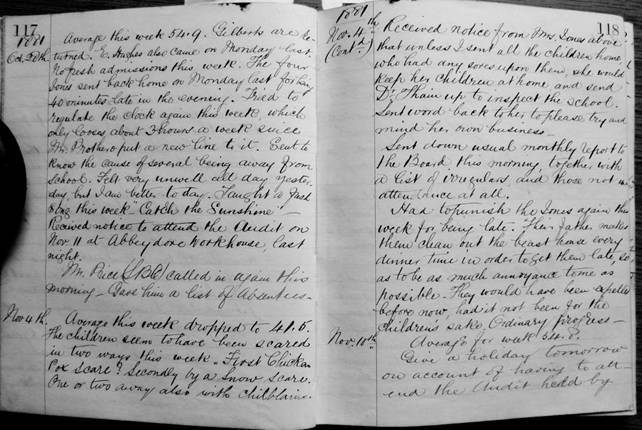 117
1881
Oct. 28th.
Average this week 54.9. Gilberts are re-
turned. E. Hughes also came on Monday last.
No fresh admissions this week. The four
Jones sent back home on Monday last for being
40 minutes late in the evening. Tried to
regulate the clock again this week, which
only loses about 3 hours a week since
Mr. Brothers put a new line to it. Sent to
know the cause of several being away from
School. Felt very unwell all day yester-
day, but I am better to day. Taught a fresh
song this week "Catch the Sunshine"
Received notice to attend the Audit on
Nov 11 at Abbeydore Workhouse, last
night.
Mr. Price called in again this
morning - Gave him a list of Absentees -
Nov 4th.
Average this week dropped to 41.5.
The children seem to have been scared
in two ways this week. First Chicken
Pox scare? Secondly by a Snow scare.
One or two away also with chilblains.
118
1881
Nov. 4th
(Contd.)
Received notice from Mrs. Jones above
that unless I sent all the children home
who had any sores upon them, she would
keep her children at home and send
Dr. Thain up to inspect the School.
Sent word back to her to please try and
mind her own business -
Sent down usual monthly report to
the Board this morning, together with
a list of irregulars and those not in
attendance at all.
Had to punish the Jones again this
week for being late. Their father makes
them clean out the beast house every
dinner time in order to get them late, so
as to be as much annoyance to me as
possible. They would have been expelled
before now, had it not been for the
children's sake. Ordinary progress -
Nov. 10th
Average for week 54.
Give a holiday tomorrow
on account of having to att-
end the Audit held by